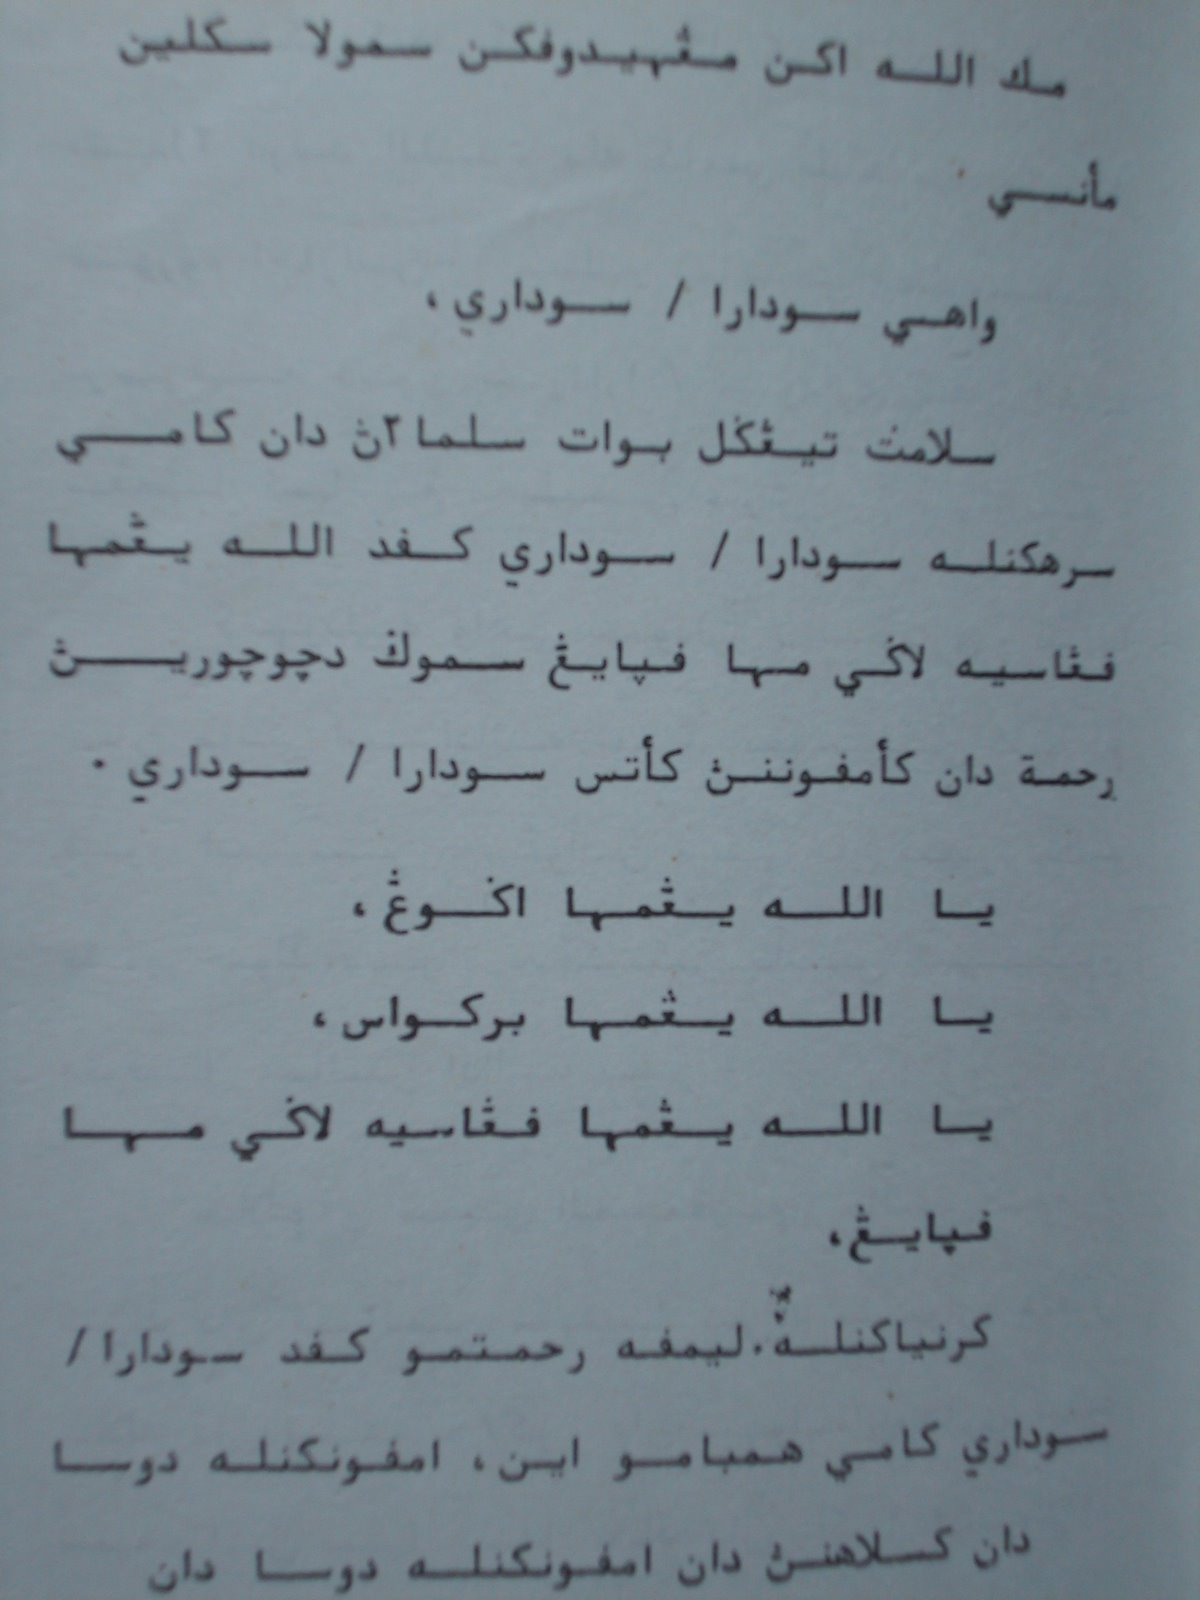 مك الله اكن مڠهيدوفكن سمولا سكلين
مأنسي
واهي سودارا / سوداري ،
سلامت تيڠݢل بوات سلما٢ڽ دان كامي
سرهكنله سودارا / سوداري كفد الله يڠمها
فڠاسيه لاݢي مها فڽايڠ سموݢ دچوچوريڽ
رحمة دان كأمفوننڽ كأتس سودارا / سوداري .
يا الله يڠمها اݢوڠ ،
يا الله يڠمها بركواس ،
يا الله يڠمها فڠاسيه لاݢي مها
فڽايڠ ،
كرنياكنله . ليمفه رحمتمو كفد سودارا /
سوداري كامي همبامو اين ، امفونكنله دوسا
دان كسلاهنڽ دان امفونكنله دوسا دان